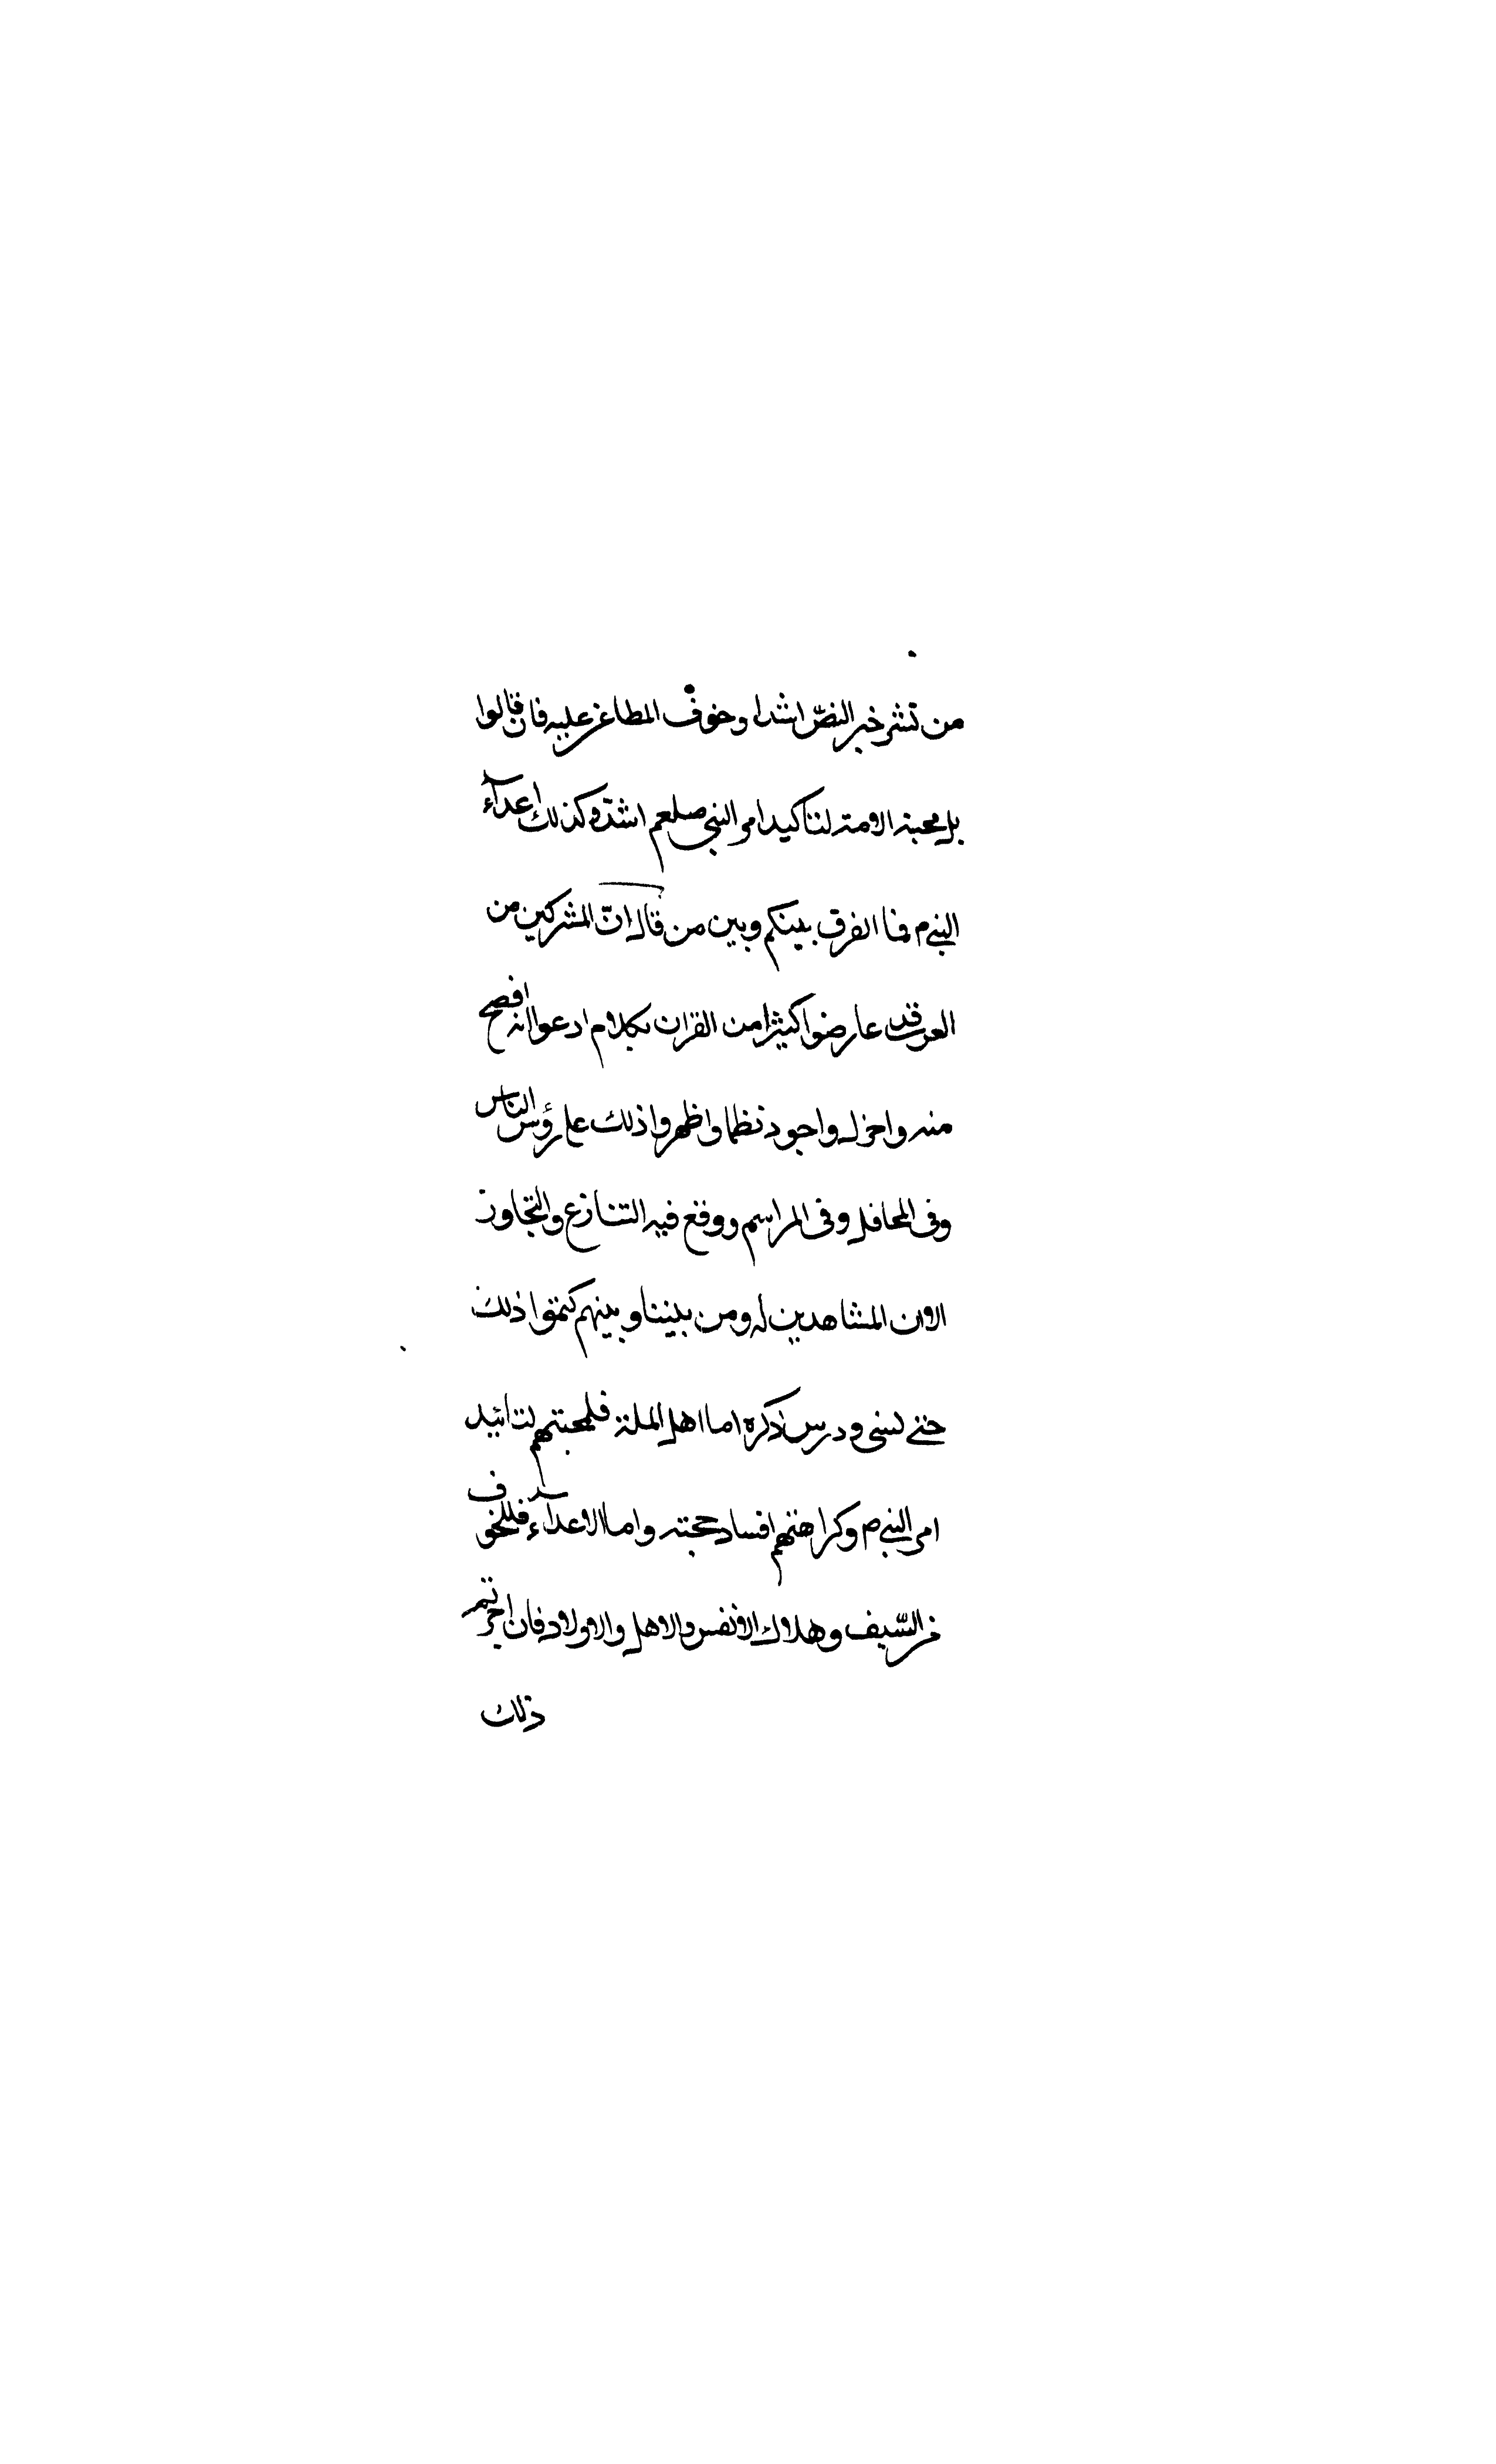 من نشر خبر النصّ اشدا وخوف المطاعن عليه فان قالوا
بل محبة الامة لتاكيد امر النبي صلعم اشدّ وكذلك اعدآء
النبي م فما الفرق بينكم وبين من قال انّ المشركين من
العرب قد عارضوا كثيرا من القران بكلام ادعوا انه افصح
منه واجزل واجود نظما واظهروا ذلك على رؤس الناس
وفي المحافل وفي المراسم ووقع فيه التنازع والتجاوز
الا ان المشاهدين له ومن بيننا وبينهم كتموا ذلك
حتى نسى ودرس ذكره اما اهل الملة فلمحبتهم لتائيد
امر النبي م وكراهتهم افساد حجته واما الاعدآء فللخوف
من السّيف وهلاك الانفس والاهل والاولاد فان اجزتم
ذلك